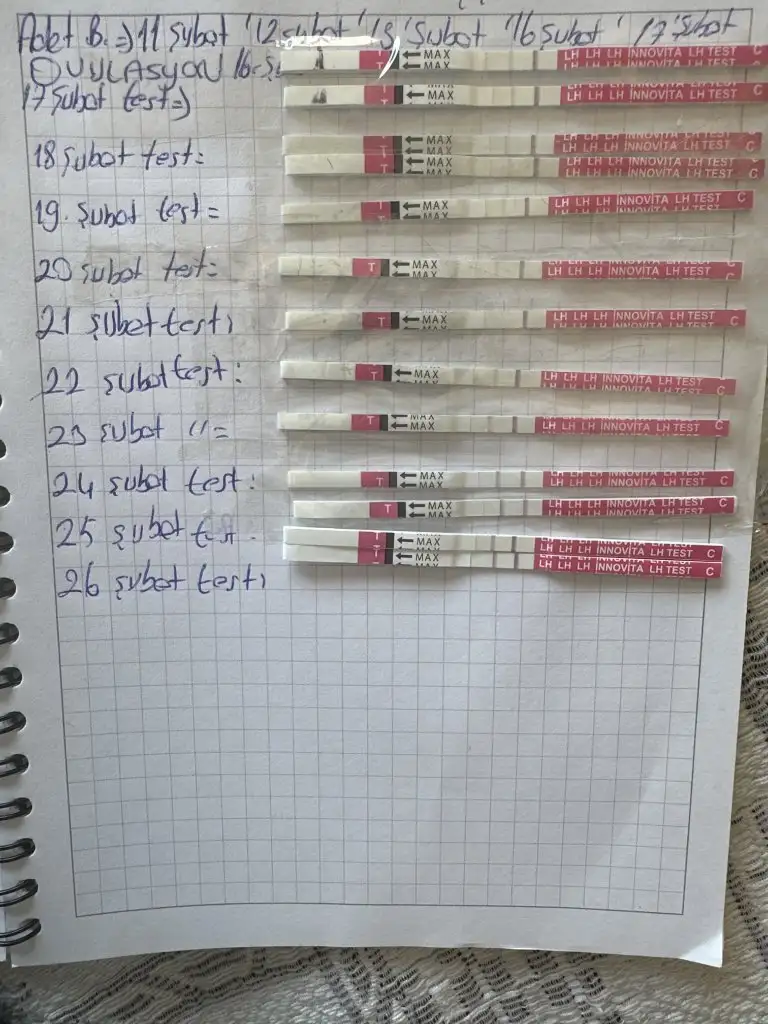 Adet B. => 11 şubat '12 şubat' 13 şubat '16 şubat' 17 şubat
OVULASYON 16-Şu
T ← MAX LH LH LH INNOVITA LH TEST C
17 şubat test=)
T ← MAX LH LH LH INNOVITA LH TEST C
18 şubat test=
T ← MAX LH LH LH INNOVITA LH TEST C
T ← MAX LH LH LH INNOVITA LH TEST C
19. şubat test=
T ← MAX LH LH LH INNOVITA LH TEST C
20 şubat test=
T ← MAX LH LH LH INNOVITA LH TEST
21 şubat test,
T ← MAX LH LH LH INNOVITA LH TEST C
22 şubat test:
T ← MAX LH LH LH INNOVITA LH TEST C
23 şubat "=
T ← MAX LH LH LH INNOVITA LH TEST C
24 şubat test:
T ← MAX LH LH LH INNOVITA LH TEST C
T ← MAX LH LH LH INNOVITA LH TEST C
25 şubat test.
T ← MAX LH LH LH INNOVITA LH TEST C
26 şubat test,
T ← MAX LH LH LH INNOVITA LH TEST C